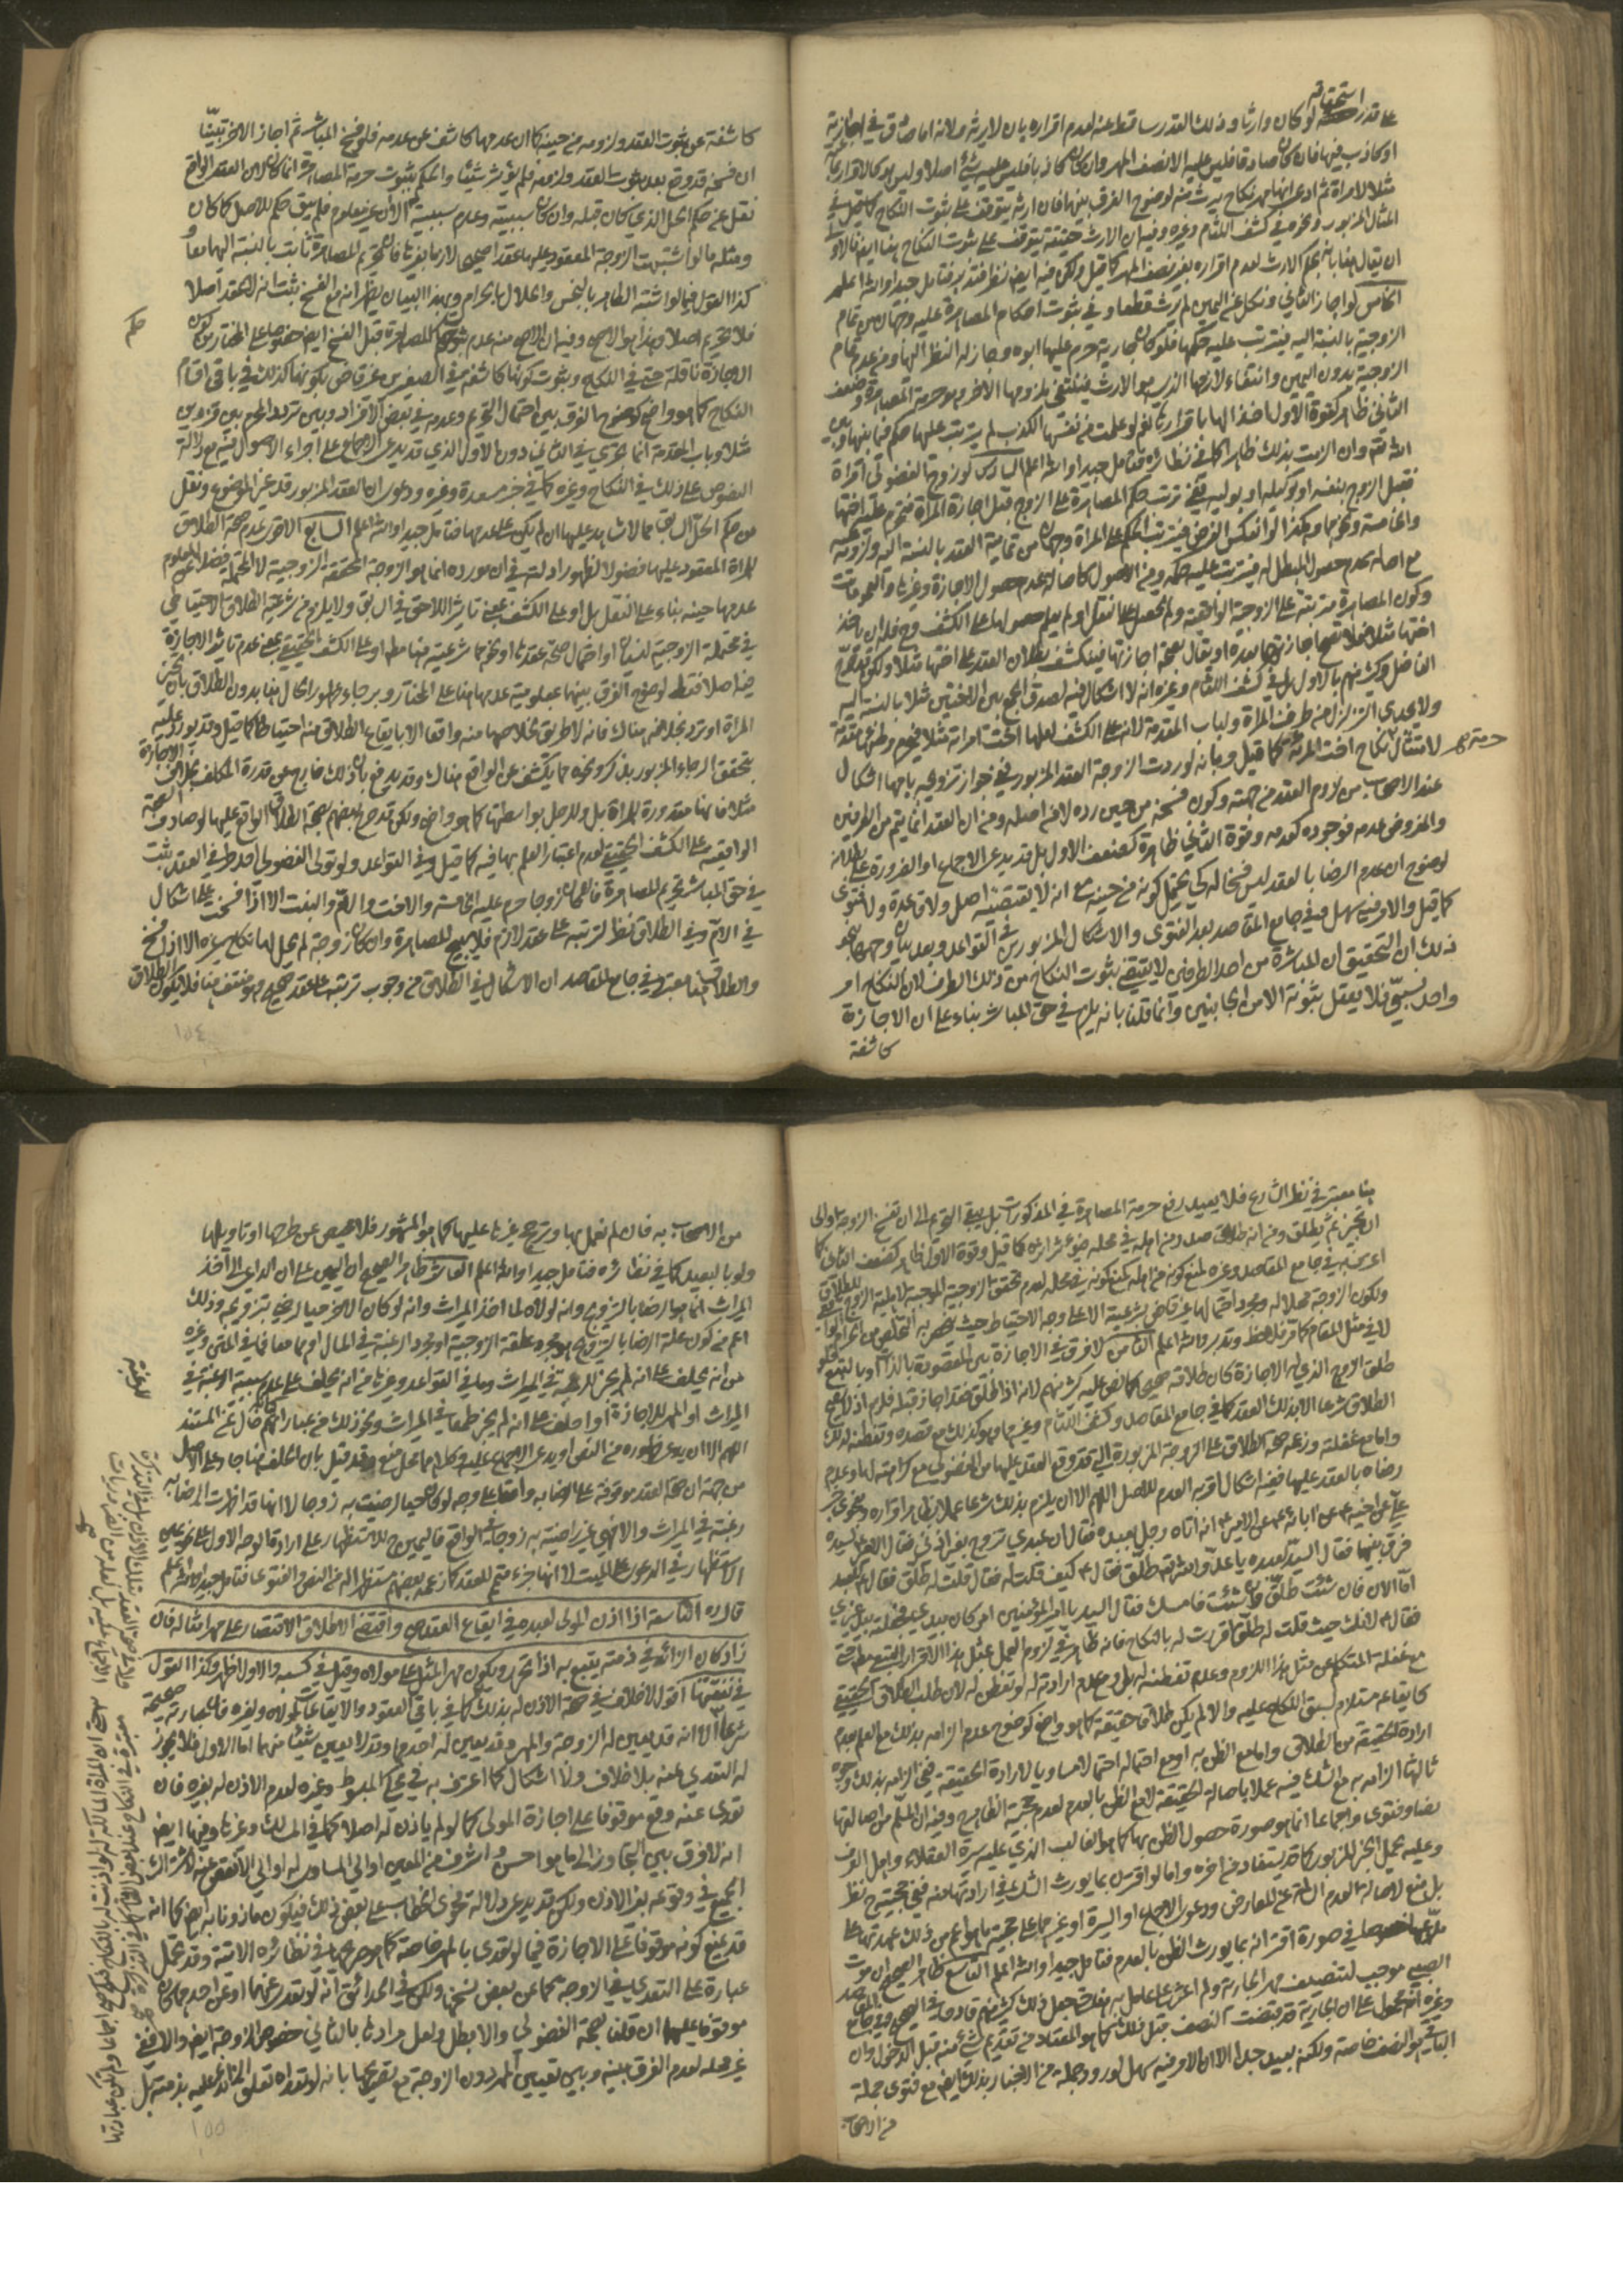 استحقاقه
على قدر لو كان وارثا وذلك القدر ساقط عنه لعدم اقراره بان لا يرثه ولانه اما صادق في اجازته
او كاذب فيها فان كان صادقا فليس عليه الا نصف المهر وان كان كاذبا فليس عليه شئ اصلا وليس هو كالاقرار
مثلا لامراة ثم ادعى انها مهر نكاح يرث منه لوضوح الفرق بينهما فان ارثه يتوقف على ثبوت النكاح
المثال المزبور ونحوه في كشف اللثام وغيره وفيه ان الارث حقيقة يتوقف على ثبوت النكاح هنا ايضا فالاولى
ان يقال هنا بانه يحكم بالارث لعدم اقراره بغير نصف المهر كما قيل ولكن فيه ايضا نظر فتدبر فتامل جيدا والله اعلم
الخامس لو اجاز الثاني ونكل عن اليمين لم يرث قطعا وفي ثبوت احكام المصاهرة عليه وجهان من تمام
الزوجية بالنسبة اليه فيترتب عليه حكمها فلو كان جارية حرم عليها ابوه وجاز له النظر الى امها ومن عدم تمام
الزوجية بدون اليمين وانتفاء لازمها الذي هو الارث فينتفي ملزومها الاخر وهو حرمة المصاهرة وضعف
الثاني ظاهر كقوة الاول اخذا لها باقرارها نعم لو علمت من نفسها الكذب لم يترتب عليها حكم فيما بينها وبين
الله تعه وان الزمت بذلك ظاهرا كما في نظائره فتامل جيدا والله اعلم السادس لو زوج الفضولي امراة
فقبل الزوج بنفسه او بوكيله او بوليه ففي ترتب حكم المصاهرة على الزوج قبل اجازة المراة فتحرم عليه اختها
والخامسة ونحوهما وكذا لو انعكس الفرض فيترتب الحكم على المراة وجهان من تمامية العقد بالنسبة اليه ولزومه عليه
مع اصالة عدم حصول المبطل له فيترتب عليه حكمه ومن الاصول كاصالة عدم حصول الاجازة وغيرها والعمومات
وكون المصاهرة مترتبة على الزوجية الواقعية ولم تحصل على النقل او لم يعلم حصولها على الكشف وح فله ان ياخذ
اختها مثلا فلا تصح اجازتها بعده او يقال بصحة اجازتها فينكشف بطلان العقد على اختها مثلا ولكن قد صرح
الفاضل وكثير منهم بالاول بل في كشف اللثام وغيره انه لا اشكال فيه لصدق الجمع بين الاختين مثلا بالنسبة اليه
ولا يجدي التزلزل من طرف المراة ولباب المقدمة لانه على الكشف لعلها اخت امراته مثلا فتحرم
حرمة لامتثال نكاح اخت المراة كما قيل وبانه لو ردت الزوجة العقد المزبور ففي جواز تزويجه بامها اشكال
عند الاصحاب من لزوم العقد من جهته وكون فسخه من حين رده لا من اصله ومن ان العقد انما يتم من الطرفين
والمفروض عدمه فوجوده كعدمه وقوة الثاني ظاهرة كضعف الاول بل قد يدعى الاجماع او الضرورة على بطلانه
لوضوح ان عدم الرضا بالعقد ليس فسخا له كي يحتمل كونه من حينه مع انه لا يقتضيه اصل ولا قاعدة ولا فتوى
كما قيل والامر فيه سهل وفي جامع المقاصد بعد الفتوى والاشكال المزبورين في القواعد وبعد بيان وجههما بنحو
ذلك ان التحقيق ان المباشرة من احد الطرفين لا يقتضي ثبوت النكاح من ذلك الطرف لان النكاح امر
واحد نسبي فلا يعقل ثبوته الا من الجانبين وانما قلنا بانه يلزم في حق المباشر بناء على ان الاجازة
كاشفة
كاشفة عن ثبوت العقد ولزومه من حينه كما ان عدمها كاشف عن عدمه فلو فسخ المباشر ثم اجاز الاخر تبينا
ان فسخه قد وقع بعد ثبوت العقد ولزومه فلم يؤثر شيئا والحكم بثبوت حرمة المصاهرة انما كان لان العقد الواقع
نقل عن حكم الحل الذي كان قبله وان كان سببيته وعدم سببيته الان غير معلوم فلم يبق حكم للاصل كما كان
ومثله ما لو اشتبهت الزوجة المعقود عليها عقدا صحيحا لازما بغيرها فان تحريم المصاهرة ثابت بالنسبة اليهما معا
كذا القول فيما لو اشتبه الطاهر بالنجس والحلال بالحرام وبهذا البيان يظهر انه مع الفسخ يثبت انه لا عقد اصلا
فلا تحريم اصلا وهذا هو الاصح وفيه ان الاصح منه عدم ثبوت حكم المصاهرة قبل الفسخ ايضا خصوصا على المختار من كون
الاجازة ناقلة حتى في النكاح وثبوت كونها كاشفة في الصغيرين غير قاض بكونها كذلك في باقي اقسام
النكاح كما هو واضح كوضوح الفرق بين احتمال التحريم وعدمه في بعض الافراد وبين تردد المحرم بين فردين
مثلا وباب المقدمة انما يجري في الثاني دون الاول الذي قد يدعى الاجماع على اجراء الاصول فيه مع دلالة
النصوص على ذلك في النكاح وغيره كما في خبر مسعدة وغيره ودعوى ان العقد المزبور قد غير الموضوع ونقل
عن حكم الحل السابق مما لا شاهد عليها ان لم يكن على عدمها فتامل جيدا والله اعلم السابع الاقوى عدم صحة الطلاق
للمراة المعقود عليها فضولا لظهور ادلته في ان مورده انما هو الزوجة المحققة الزوجية لا المحتملة فضلا عن المعلوم
عدمها حينه بناء على النقل بل او على الكشف بمعنى تاثير اللاحق في السابق ولا يلزم من شرعية الطلاق الاحتياطي
في محتملة الزوجية لنسيان او احتمال صحة عقدها او نحوهما شرعيته هنا مطلقا او على الكشف الحقيقي بمعنى عدم تاثير الاجازة
فيه اصلا فقط لوضوح الفرق بينهما بمعلومية عدمها هنا على المختار وبرجاء ظهور الحال هنا بدون الطلاق بان تجيز
المراة او ترد بخلافه هناك فانه لا طريق لخلاصها منه واقعا الا بايقاع الطلاق منه احتياطا كما قيل وقد يورد عليه
بتحقق الرجاء المزبور بذكر ونحوه مما يكشف عن الواقع هناك وقد يدفع بان ذلك خارج عن قدرة المكلف بخلاف الاجازة
مثلا فانها مقدورة للمراة بل وللرجل بواسطتها كما هو واضح ولكن قد صرح بعضهم بصحة الطلاق الواقع عليها لو صادف الصحة
الواقعية على الكشف الحقيقي لعدم اعتبار العلم بها فيه كما قيل وفي القواعد ولو تولى الفضولي احد طرفي العقد ثبت
في حق المباشر تحريم المصاهرة فان كان زوجا حرم عليه الخامسة والاخت والام والبنت الا اذا فسخت على اشكال
في الام وفي الطلاق نظر لترتبه على عقد لازم فلا يبيح المصاهرة وان كان زوجة لم يحل لها نكاح غيره الا اذا فسخ
والطلاق هنا معتبر في جامع المقاصد ان الاشكال في الطلاق من وجوب ترتبه على عقد صحيح وهو منتف هنا فلا يكون الطلاق
١٥٤
هنا معتبر في نظر الشارع فلا يفيد رفع حرمة المصاهرة في المذكورات بل يبقى التحريم الى ان تفسخ الزوجة او الى
ان تجيز ثم يطلق ومن انه طلاق صدر من اهله في محله جامع شرائطه كما قيل وقوة الاول ظاهرة كضعف الثاني كما
اعترف به في جامع المقاصد وغيره لمنع كونه من اهله كمنع كونه في محله لعدم تحقق الزوجية الموجبة لاهلية الزوج للطلاق
ولكون الزوجة محلا له ومجرد احتمالها غير قاض بشرعيته الا على وجه الاحتياط حيث ينحصر به التخلص من الحرام
لا في مثل المقام كما مر فلاحظ وتدبر والله اعلم الثامن لا فرق في الاجازة بين المقصودة بالذات وبالتبع فلو
طلق الزوج الذي له الاجازة كان طلاقه صحيحا كما نص عليه كثير منهم لانه اذا طلق فقد اجاز قبله فلزم اذ لا يصح
الطلاق شرعا الا بذلك العقد كما في جامع المقاصد وكشف اللثام وغيرهما وهو كذلك مع قصده وتفطنه لذلك
واما مع غفلته وزعمه صحة الطلاق على الزوجة المزبورة التي قد وقع العقد عليها من الفضولي مع كراهته لها وعدم
رضاه بالعقد عليها ففيه اشكال اقربه العدم للاصل اللهم الا ان يلزم بذلك شرعا عملا بظاهر اقراره وفحوى خبر
علي عن اخيه عن ابائه عن علي امير المؤمنين انه اتاه رجل بعبده فقال ان عبدي تزوج بغير اذني فقال لسيده
فرق بينهما فقال السيد لعبده يا عدو الله تعه طلق فقال كيف قلت له فقال قلت له طلق فقال للعبد
اما الان فان شئت طلق وان شئت فامسك فقال السيد يا امير المؤمنين امر كان بيدي فجعلته بيد غيري
فقال لانك حيث قلت له طلق اقررت له بالنكاح فانه ظاهر في لزوم العمل بمثل هذا الاقرار التبعي مطلقا حتى
مع غفلة المتكلم عن مثل هذا اللزوم وعدم تفطنه له بل ومع علم ارادته له لو تفطن له لان طلب الطلاق الحقيقي
كايقاعه مستلزم لسبق النكاح عليه والا لم يكن طلاقا حقيقة كما هو واضح كوضوح عدم الزامه بذلك مع العلم بعدم
ارادة الحقيقة من الطلاق واما مع الظن به او مع احتماله احتمالا مساويا لارادة الحقيقة ففي الزامه بذلك وجوه
ثالثها الزامه به مع الشك فيه عملا باصالة الحقيقة لا مع الظن بالعدم لعدم حجية الظاهر ح وفيه ان المسلم من اصالتها
نصا وفتوى واجماعا انما هو صورة حصول الظن بها كما هو الغالب الذي عليه سيرة العقلاء واهل العرف
وعليه يحمل الخبر المزبور كما قد يستفاد من اخره واما لو اقترن بما يورث الشك في ارادتها منه ففي حجيته ح نظر
بل منع لاصالة العدم السالمة عن المعارض ودعوى الاجماع او السيرة او غيرهما على حجية ما هو اعم من ذلك عهدتها على
مدعيها خصوصا في صورة اقترانه بما يورث الظن بالعدم فتامل جيدا والله اعلم التاسع ظاهر الصحيح ان موت
الصبي موجب لتنصيف مهر الجارية ولم اعثر على عامل به
وغيره انه محمول على ان الجارية قد قبضت النصف قبل ذلك كما هو المعتاد من تقديم شئ منه قبل الدخول وان
الباقي هو النصف خاصة ولكنه بعيد جدا الا ان الامر فيه سهل لورود جملة من الاخبار بذلك ايضا مع فتوى جملة
من الاصحاب
من الاصحاب به فان لم نعمل بها وترجح غيرها عليها كما هو المشهور فلا محيص عن طرحها او تاويلها
ولو بالبعيد كما في نظائره فتامل جيدا والله اعلم العاشر ظاهر الصحيح ان اليمين على ان الداعي الى اخذ
الميراث انما هو الرضا بالتزويج وانه لولاه لما اخذ الميراث وانه لو كان الاخر حيا لرضي بتزويجه وذلك
اعم من كون علة الرضا بالتزويج هو مجرد علقة الزوجية او مجرد الرغبة في المال او هما معا فما في المتن وغيره
من انه يحلف على انه لم يجز للرغبة في الميراث وما في القواعد وغيرها من انه يحلف على عدم سببية الرغبة في
للرغبة
الميراث او المهر للاجازة او احلف على انه لم يجز طمعا في الميراث ونحو ذلك من عباراتهم خال عن المستند
اللهم الا ان يدعى ظهوره من النص او يدعى الاجماع عليه وكلاهما محل منع وقد قيل بان الحلف هنا جار على الاصل
من جهة ان صحة العقد موقوفة على الرضا به واقعا على وجه لو كان حيا لرضيت به زوجا لا انها قد اظهرت الرضا به
رغبة في الميراث والا فهي غير راضية به زوجا في الواقع فاليمين ح للاستظهار على ارادة الوجه الاول على نحو يمين
الاستظهار في الدعوى على الميت لا انها جزء متمم للعقد كما زعمه بعضهم مستظهرا له من النص والفتوى فتامل جيدا والله اعلم
قال ره التاسعة اذا اذن المولى لعبده في ايقاع العقد صح واقتضى الاطلاق الاقتصار على مهر امثاله فان
زاد كان الزائد في ذمته يتبع به اذا تحرر ويكون مهر المثل على مولاه وقيل في كسبه والاول اظهر وكذا القول
في نفقتها اقول لا خلاف في صحة الاذن له بذلك كما في باقي العقود والايقاعات لمولاه ولغيره فان عبارته صحيحة
شرعا الا انه قد يعين له الزوجة والمهر وقد يعين له احدهما وقد لا يعين شيئا منهما اما الاول فلا يجوز
له التعدي عنه بلا خلاف ولا اشكال كما اعترف به في محكي المبسوط وغيره لعدم الاذن له بغيره فان
تعدى عنه وقع موقوفا على اجازة المولى كما لو لم ياذن له اصلا كما في المسالك وغيرها وفيها ايضا
انه لا فرق بين التجاوز الى ما هو احسن واشرف من المعين او الى المساوي له او الى الانقص عنه لاشتراك
الجميع في وقوعه بغير الاذن ولكن قد يدعى دلالة فحوى الخطاب على بعض ذلك فيكون ماذونا به ايضا كما انه
قد يمنع كونه موقوفا على الاجازة فيما لو تعدى بالمهر خاصة كما هو صريحهما في نظائره الاتية وقد تحمل
عبارته على التعدي في الزوجة كما عن بعض نسخها ولكن في الحدائق انه لو تعدى عنهما او عن احدهما كان
موقوفا عليهما ان قلنا بصحة الفضولي والا بطل ولعل مرادها بالثاني خصوص الزوجة ايضا والا فهي
غير محله لعدم الفرق بينه وبين تعيين المهر دون الزوجة مع تصريحها بانه لو تعداه تعلق الزائد عليه بذمته بل
١٥٥